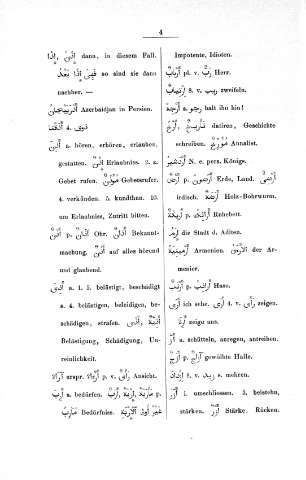 4
إِذَنْ، إِذًا dann, in diesem Fall.
فَهِىَ إِذًا بَعْدُ so sind sie dann
nachher. —
أَذْرَبِيجَانُ Azerbaidjan in Persien.
4. v.
أَذِنَ a. hören, erhören, erlauben,
gestatten. إِذْنٌ Erlaubniss. 2. z.
Gebet rufen. مُؤَذِّنٌ Gebetsrufer.
4. verkünden. 5. kundthun. 10.
um Erlaubniss, Zutritt bitten.
أُذُنٌ p. آذَانٌ Ohr. أَذَانٌ Bekannt-
machung. أُذُنٌ auf alles hörend
und glaubend.
أَذِىَ a. 1. 5. belästigt, beschädigt
s. 4. belästigen, beleidigen, be-
schädigen, strafen.
Belästigung, Schädigung, Un-
reinlichkeit.
urspr. p. v. Ansicht.
أَرِبَ a. bedürfen. p.
مَآرِبُ Bedürfnisse.
Impotente, Idioten.
أَرْبَابٌ pl. v. رَبٌّ Herr.
8. v. zweifeln.
s. halt ihn hin!
تَارِيخٌ datiren, Geschichte
schreiben. Annalist.
أَرْدَشِيرُ N. e. pers. Königs.
أَرْضٌ p. أَرَضُونَ Erde, Land.
irdisch. أَرَضَةٌ Holz-Bohrwurm.
أَرِيكَةٌ p. أَرَائِكُ Ruhebett.
إِرَمُ die Stadt d. Aditen.
أَرْمِينِيَةُ Armenien. الأَرْمَنُ der Ar-
menier.
أَرْنَبٌ p. أَرَانِبُ Hase.
أَرَى ich sehe. أَرَى 4. v. zeigen.
أَرِنَا zeige uns.
أَزَّ u. schütteln, anregen, antreiben.
أَزَجٌ p. آزَاجٌ gewölbte Halle.
إِزْدَادَ 8. v. زيد s. mehren.
أَزَرَ i. umschliessen. 3. beistehn,
stärken. أَزْرٌ Stärke, Rücken.